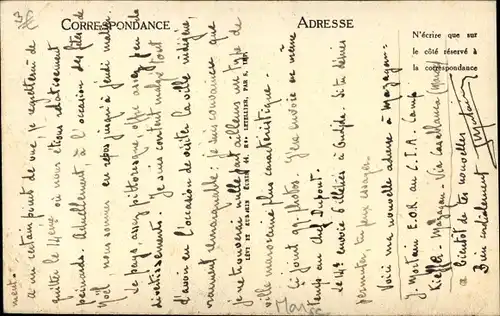 CORRESPONDANCE
ADRESSE
N'écrire que sur
le côté réservé à
la correspondance
ment.-
à un certain point de vue, je regretterai de
quitter le 14ème où nous étions relativement
peinards. Actuellement, à l'occasion des fêtes de
Noël nous sommes en repos jusqu'à jeudi matin
Le pays, assez pittoresque offre assez peu de
divertissements. Je suis content malgré tout
d'avoir eu l'occasion de visiter la ville indigène,
vraiment remarquable. Je suis convaincu que
je ne trouverai nulle part ailleurs un type de
ville marocaine plus caractéristique.-
Ci joint qq. photos. J'en envoie en même
temps au Chef Dupont.
Le 14e envoie 6 à Si tu désires
permuter, tu peux essayer.
Voici ma nouvelle adresse à Mazagan:-
J. Mortain E.O.R au C.I.A. Camp
Kieffer. Mazagan. Via Casablanca (Maroc)
à bientôt de tes nouvelles
Bien cordialement
Maroc